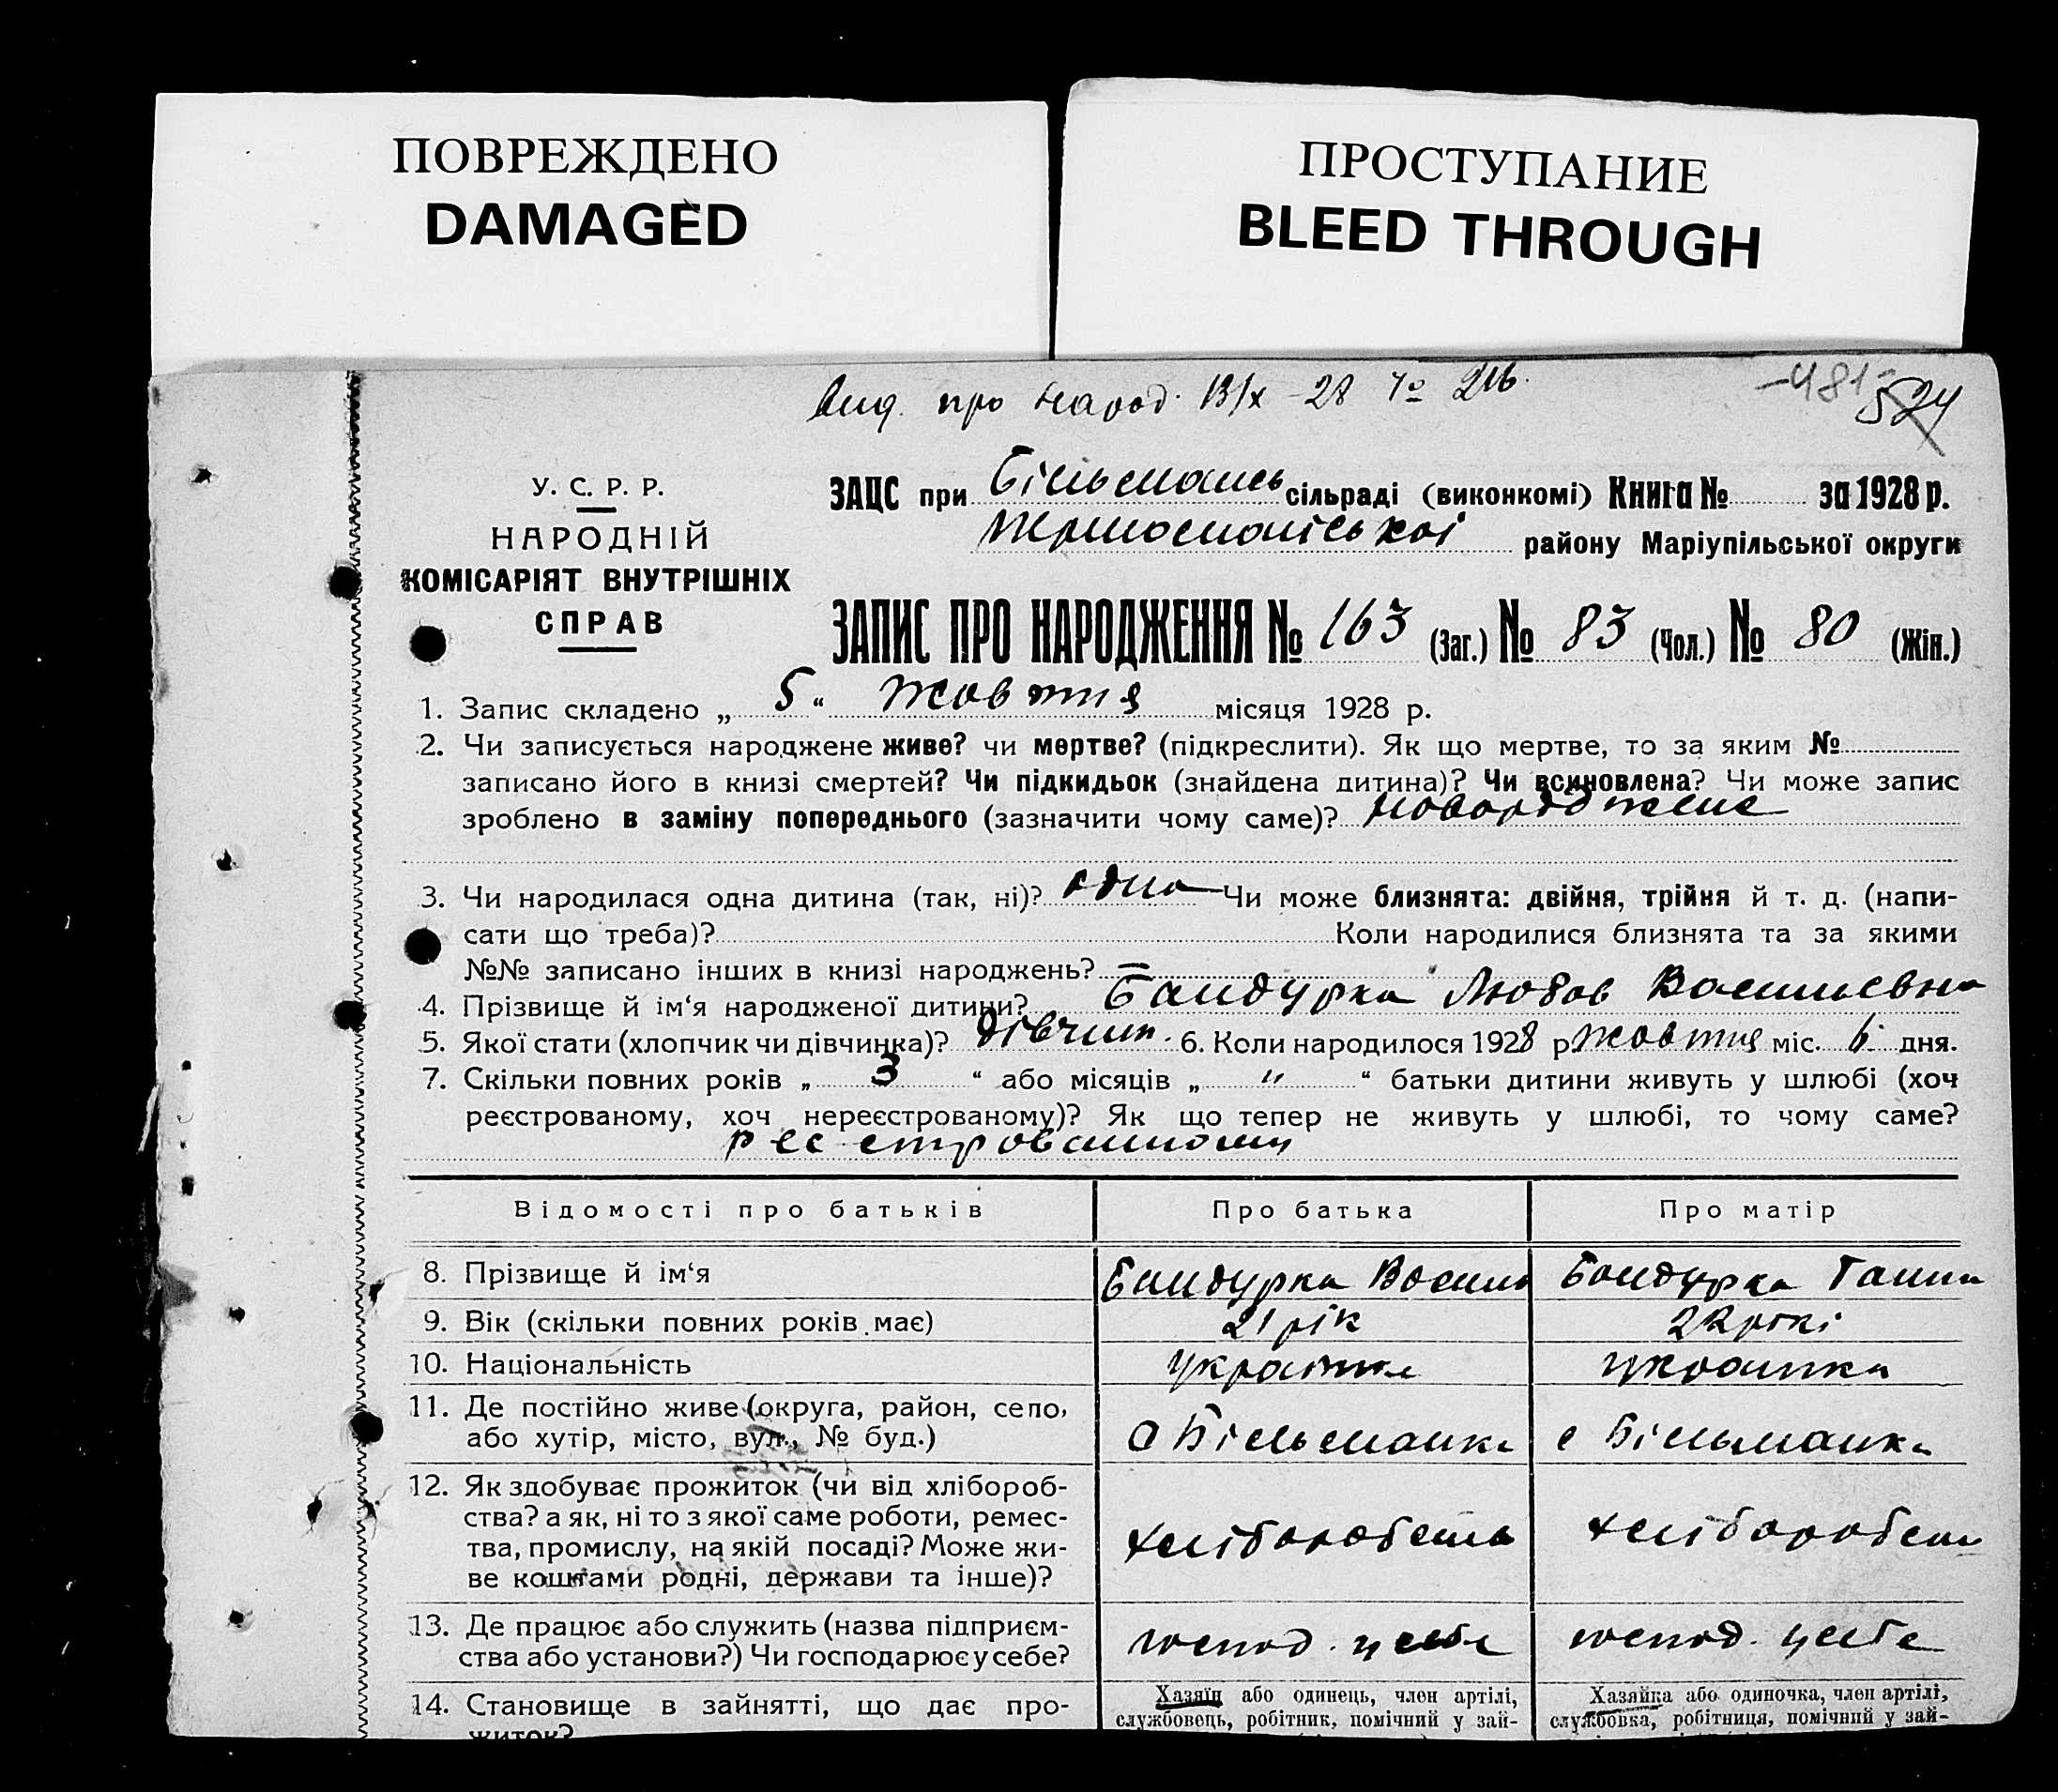 ПОВРЕЖДЕНО
DAMAGED
ПРОСТУПАНИЕ
BLEED THROUGH
про народ. 13/X-28
-481-
524
У. С. Р. Р.
НАРОДНІЙ
КОМІСАРІЯТ ВНУТРІШНІХ
СПРАВ
ЗАЦС при Більмансь сільраді (виконкомі) Книга № за 1928 р.
району Маріупільської округи
ЗАПИС ПРО НАРОДЖЕННЯ № 163 (Заг.) № 83 (Чол.) № 80 (Жін.)
1. Запис складено „ 5 “ жовтня місяця 1928 р.
2. Чи записується народжене живе? чи мертве? (підкреслити). Як що мертве, то за яким №
записано його в книзі смертей? Чи підкидьок (знайдена дитина)? Чи всиновлена? Чи може запис
зроблено в заміну попереднього (зазначити чому саме)? новорожене
3. Чи народилася одна дитина (так, ні)? одна Чи може близнята: двійня, трійня й т. д. (напи-
сати що треба)? Коли народилися близнята та за якими
№№ записано інших в книзі народжень? —
4. Прізвище й ім‘я народженої дитини? Бандурка Любов Васильевна
5. Якої стати (хлопчик чи дівчинка)? дівчин. 6. Коли народилося 1928 р. жовтня міс. дня.
7. Скільки повних років „ 3 “ або місяців „ " “ батьки дитини живуть у шлюбі (хоч
реєстрованому, хоч нереєстрованому)? Як що тепер не живуть у шлюбі, то чому саме?
реєстрованному
Відомості про батьків
Про батька
Про матір
8. Прізвище й ім‘я
Бандурка Василь
Бандурка Ганна
9. Вік (скільки повних років має)
21 рік
22 рокі
10. Національність
українка
11. Де постійно живе (округа, район, село,
або хутір, місто, вул., № буд.)
с Більманка
с Більманка
12. Як здобуває прожиток (чи від хлібороб-
ства? а як, ні то з якої саме роботи, ремес-
тва, промислу, на якій посаді? Може жи-
ве коштами родні, держави та інше)?
хліборобств
хліборобств
13. Де працює або служить (назва підприєм-
ства або установи?) Чи господарює у себе?
господ. у себе
господ. у себе
14. Становище в зайнятті, що дає про-
житок?
Хазяїн або одинець, член артілі,
службовець, робітник, помічний у зай-
Хазяйка або одиночка, член артілі,
службовка, робітниця, помічний у зай-